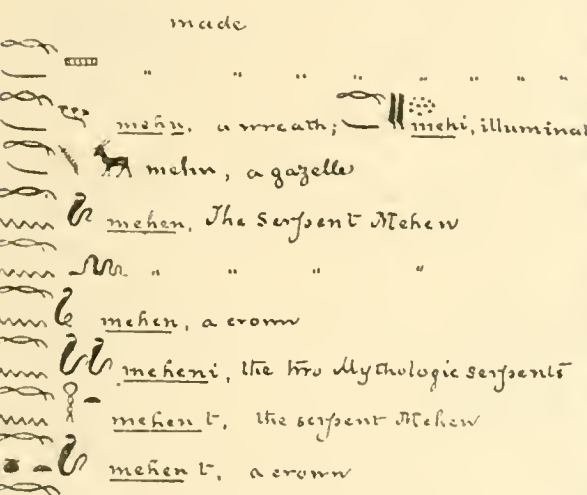 made
" " " " " " " "
mehu, a wreath; mehi, illuminat
mehu, a gazelle
mehen, The Serpent Mehen
" " " "
mehen, a crown
meheni, the two Mythologic serpents
mehen t, the serpent Mehen
mehen t, a crown